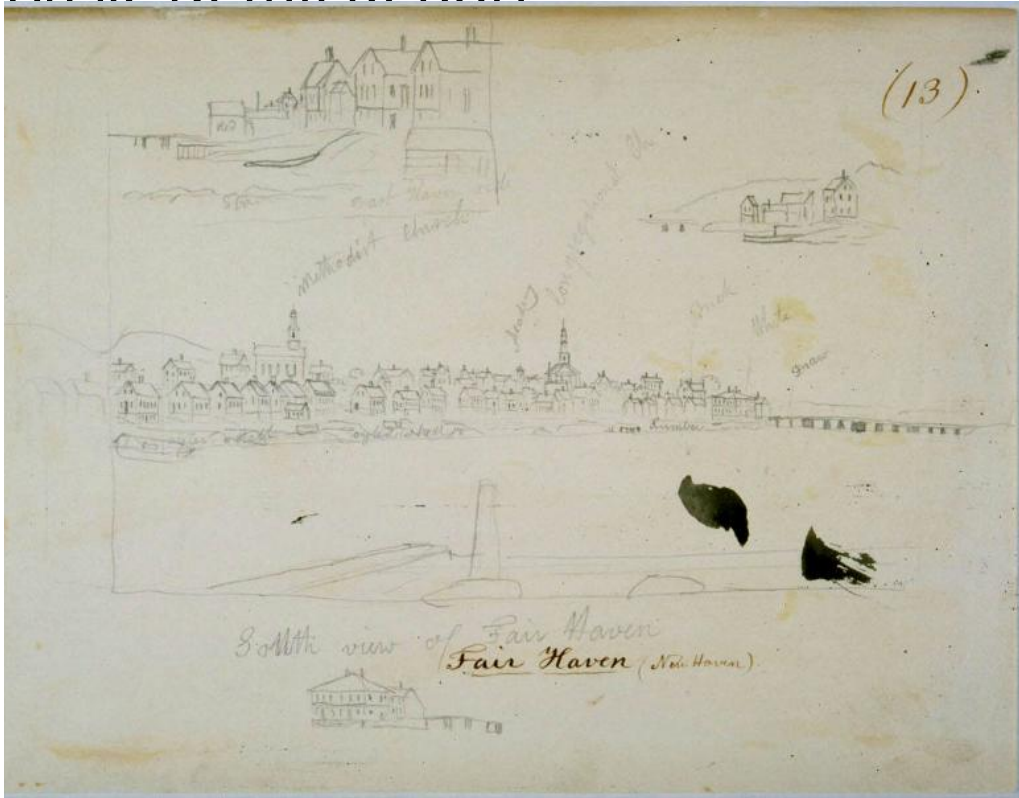 (13)
Red
East Haven side
Methodist Church
Congregationalist Ch
Brick
White
Draw
Lumber
South view of Fair Haven
Fair Haven (New Haven)